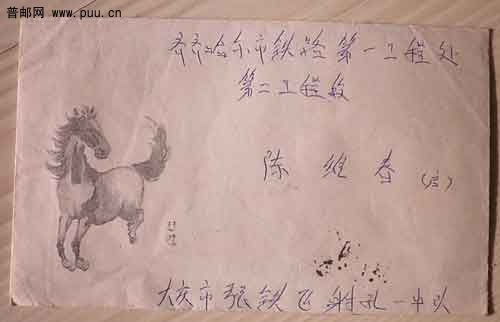 普邮网
www.puu.cn
齐齐哈尔市铁路第一工程处
第二工程段
陈继春(启)
悲鸿
大庆市张铁飞射孔一中队